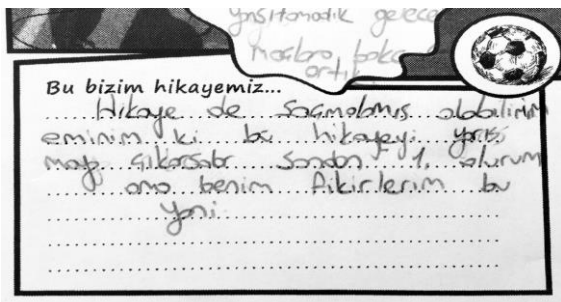 yansıtamadık gelece
maçlara bakca
artık
Bu bizim hikayemiz...
Hikaye de saçmalamış olabilirim
eminim ki bu hikayeyi yarış
maya çıkarsalar sondan 1. olurum
ama benim fikirlerim bu
yani.